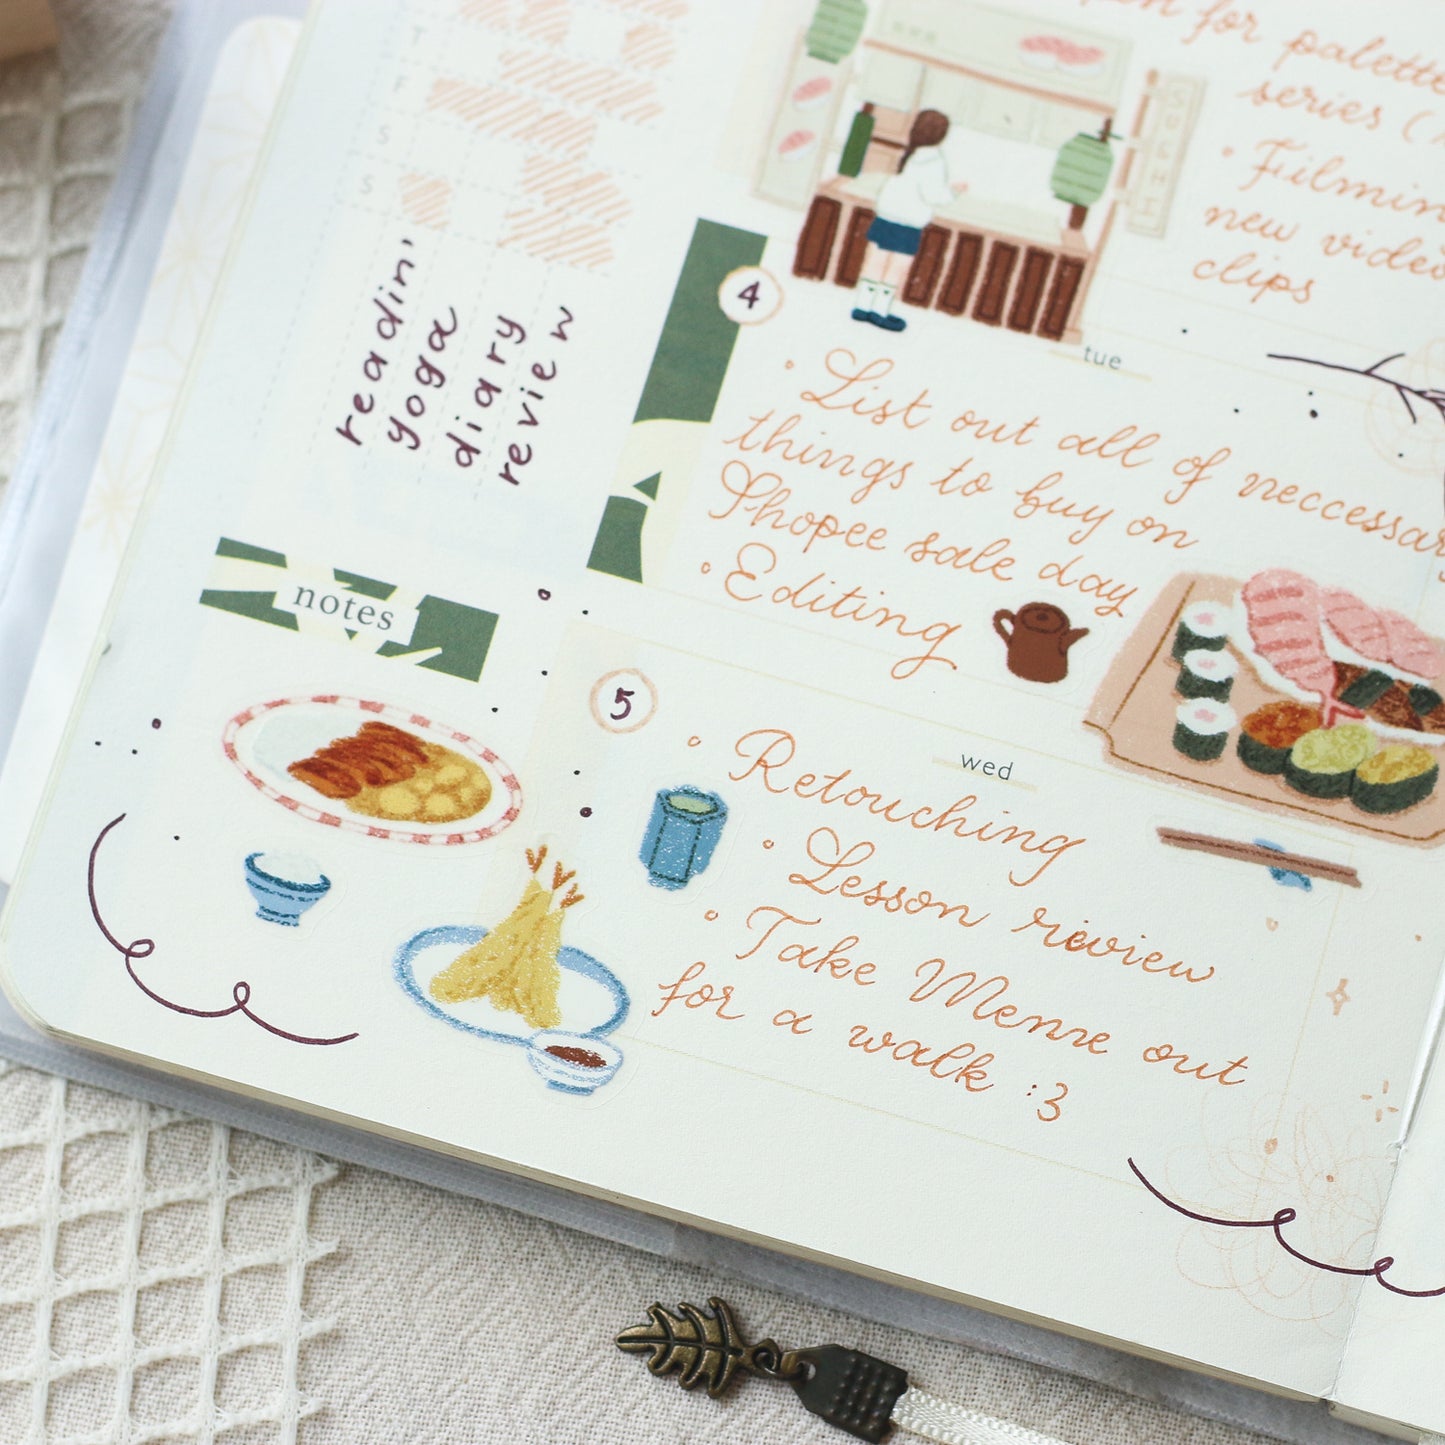 for palette
series (
Filmin
new video
clips
SUSHI
T
F
S
S
readin'
yoga
diary
review
4
tue
• List out all of neccessary
things to buy on
Shopee sale day
• Editing
notes
5
wed
• Retouching
• Lesson review
• Take Menre out
for a walk :3